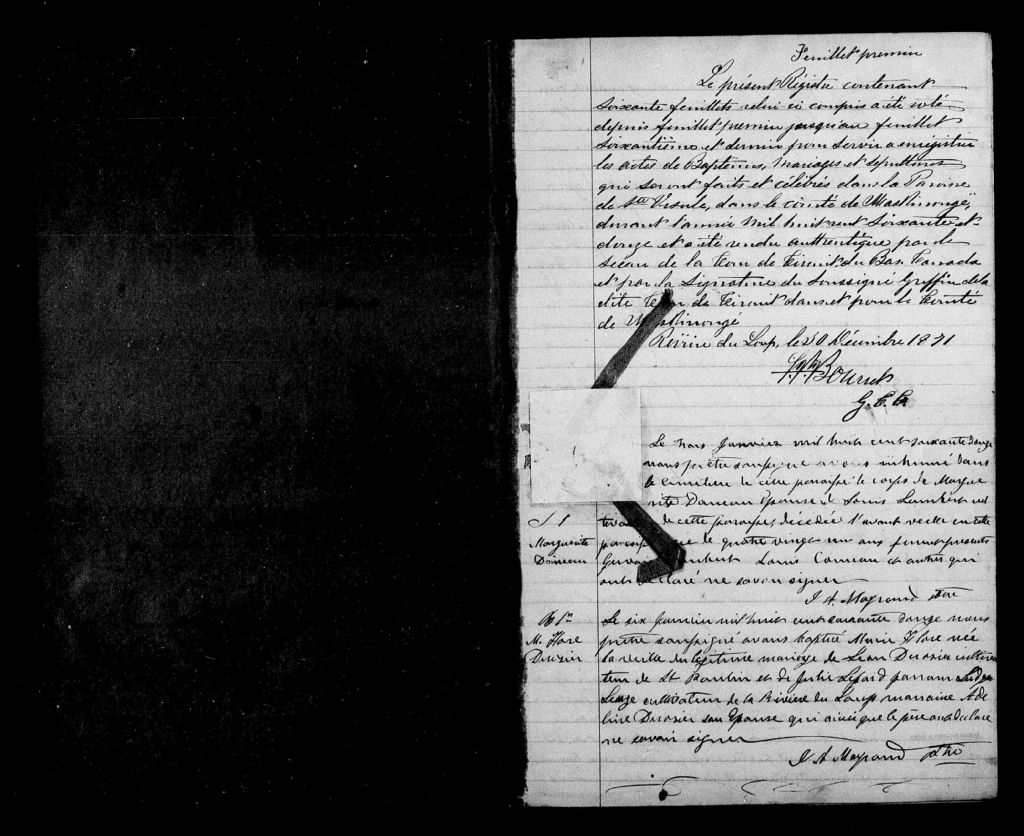 Feuillet premier
Le présent Régistre contenant
soixante feuillets celui ci compris a été coté
depuis feuillet premier jusqu'au feuillet
soixantième et dernier pour servir a enrégistrer
les actes de Baptemes, Mariages et sépultures
qui seront faits et célébrés dans la Paroisse
de Ste Ursule, dans le comté de Maskinongé,
durant l'année Mil huit cent soixante et
douze et a été rendu authentique par le
sceau de la Cour de Circuit du Bas Canada
et par la signature du Soussigné Greffier de la
dite Cour de Circuit dans et pour le Comté
de Maskinongé
Rivière du Loup, le 30 Décembre 1871
G. C. C.
Le trois Janvier mil huit cent soixante douze
nous prêtre soussigné avons inhumé dans
le cimetière de cette paroisse le corps de Margue
rite Daneau Epouse de Louis Lambert cul
S 1
de cette paroisse, décédée l'avant veille en cette
Marguerite
de quatre vingt un ans furent présents
Daneau
Gervais Lambert Louis et autres qui
ont déclaré ne savoir signer
J A Mayrand Ptre
B 1er
Le six Janvier mil huit cent soixante douze nous
M. Flore
prêtre soussigné avons baptisé Marie Flore née
Desrosier
la veille du légitime mariage de Léon Desrosier cultiva
teur de St Paulin et de Julie parrain
cultivateur de la Rivière du Loup marraine Adé
line Desrosier son Epouse qui ainsi que le père ont déclaré
ne savoir signer
J A Mayrand Ptre